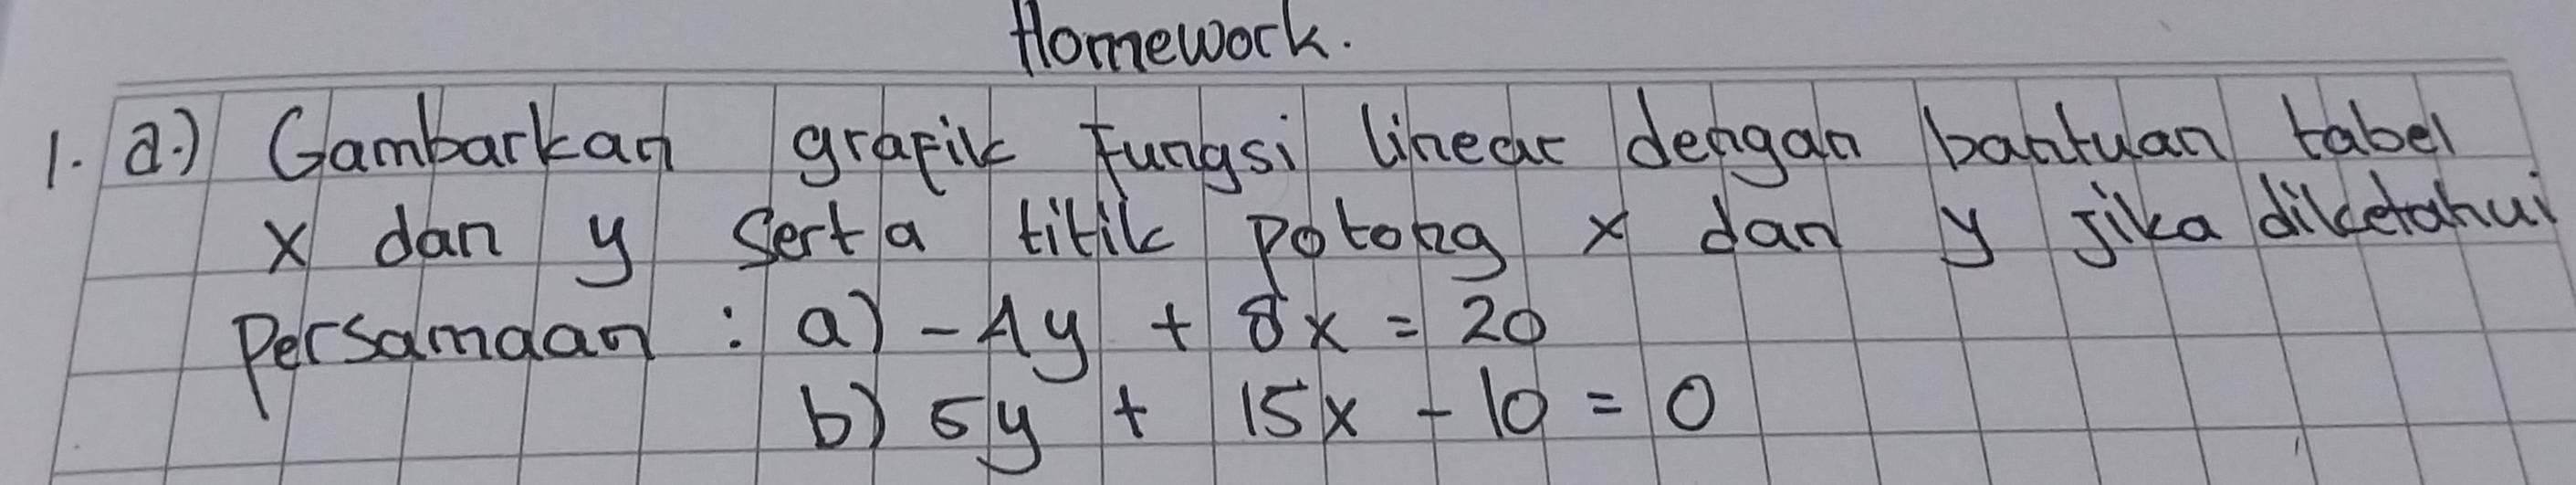 Homework.
1. a.) Gambarkan grafik fungsi linear dengan bantuan tabel
x dan y serta titik potong x dan y jika diketahui
Persamaan : a) -4y + 8x = 20
b) 5y + 15x - 10 = 0